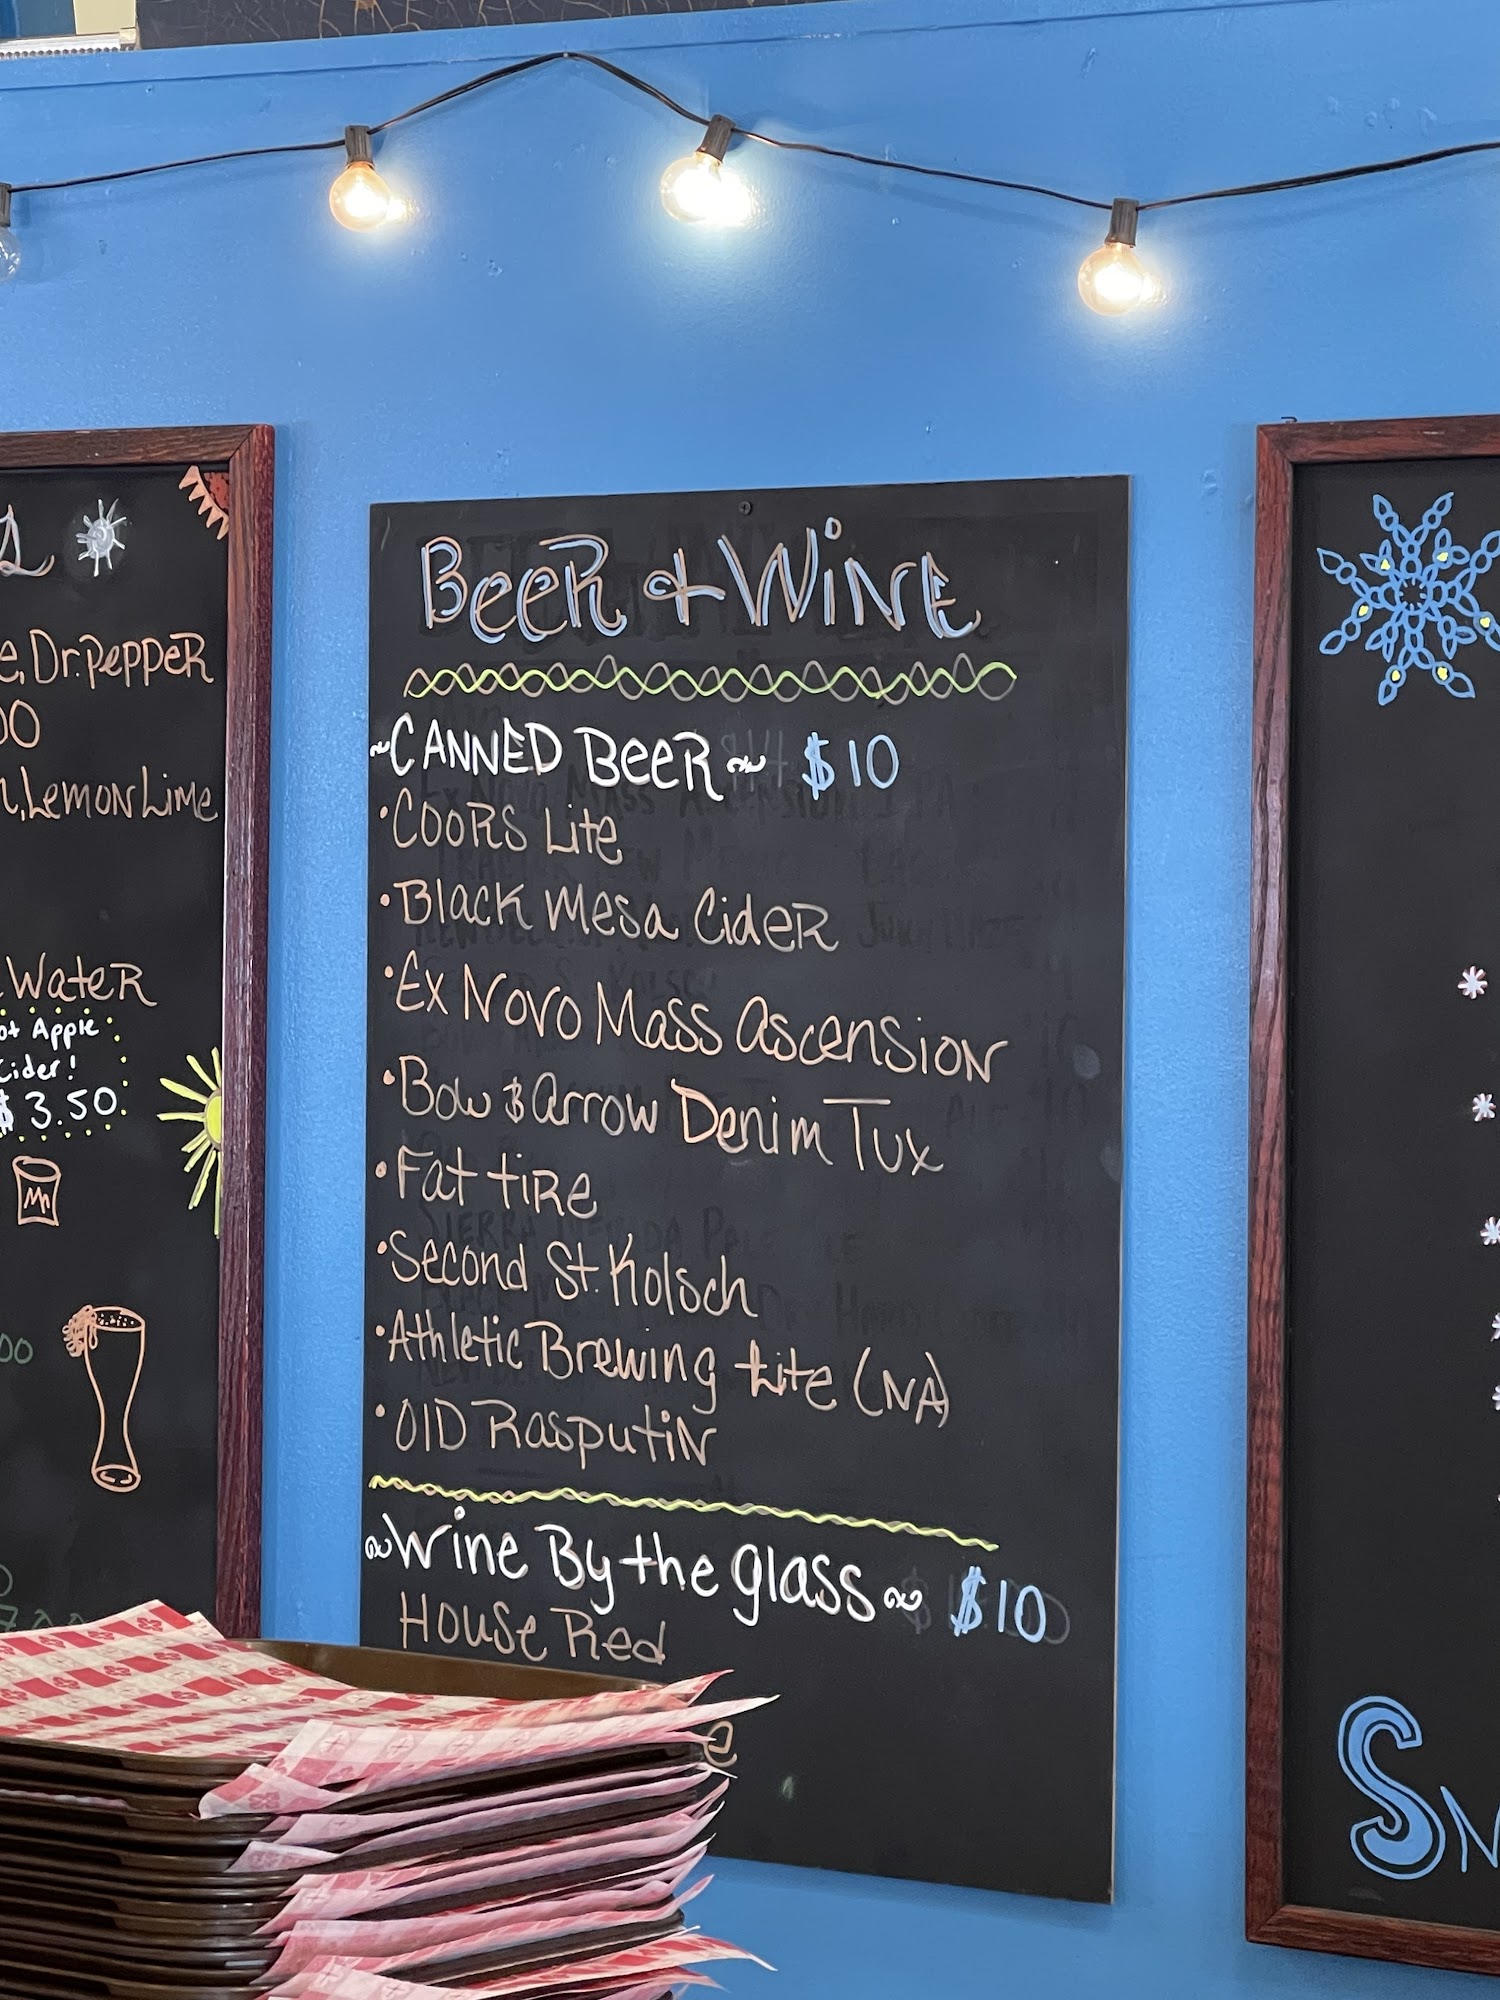 e, Dr. Pepper
00
, Lemon Lime
Water
ot Apple
Cider!
$3.50
Beer & Wine
~Canned Beer~ $10
• Coors Lite
• Black Mesa Cider
• Ex Novo Mass Ascension
• Bow & Arrow Denim Tux
• Fat Tire
• Second St. Kolsch
• Athletic Brewing Lite (NA)
• Old Rasputin
~Wine By the glass~ $10
House Red
e
Sn